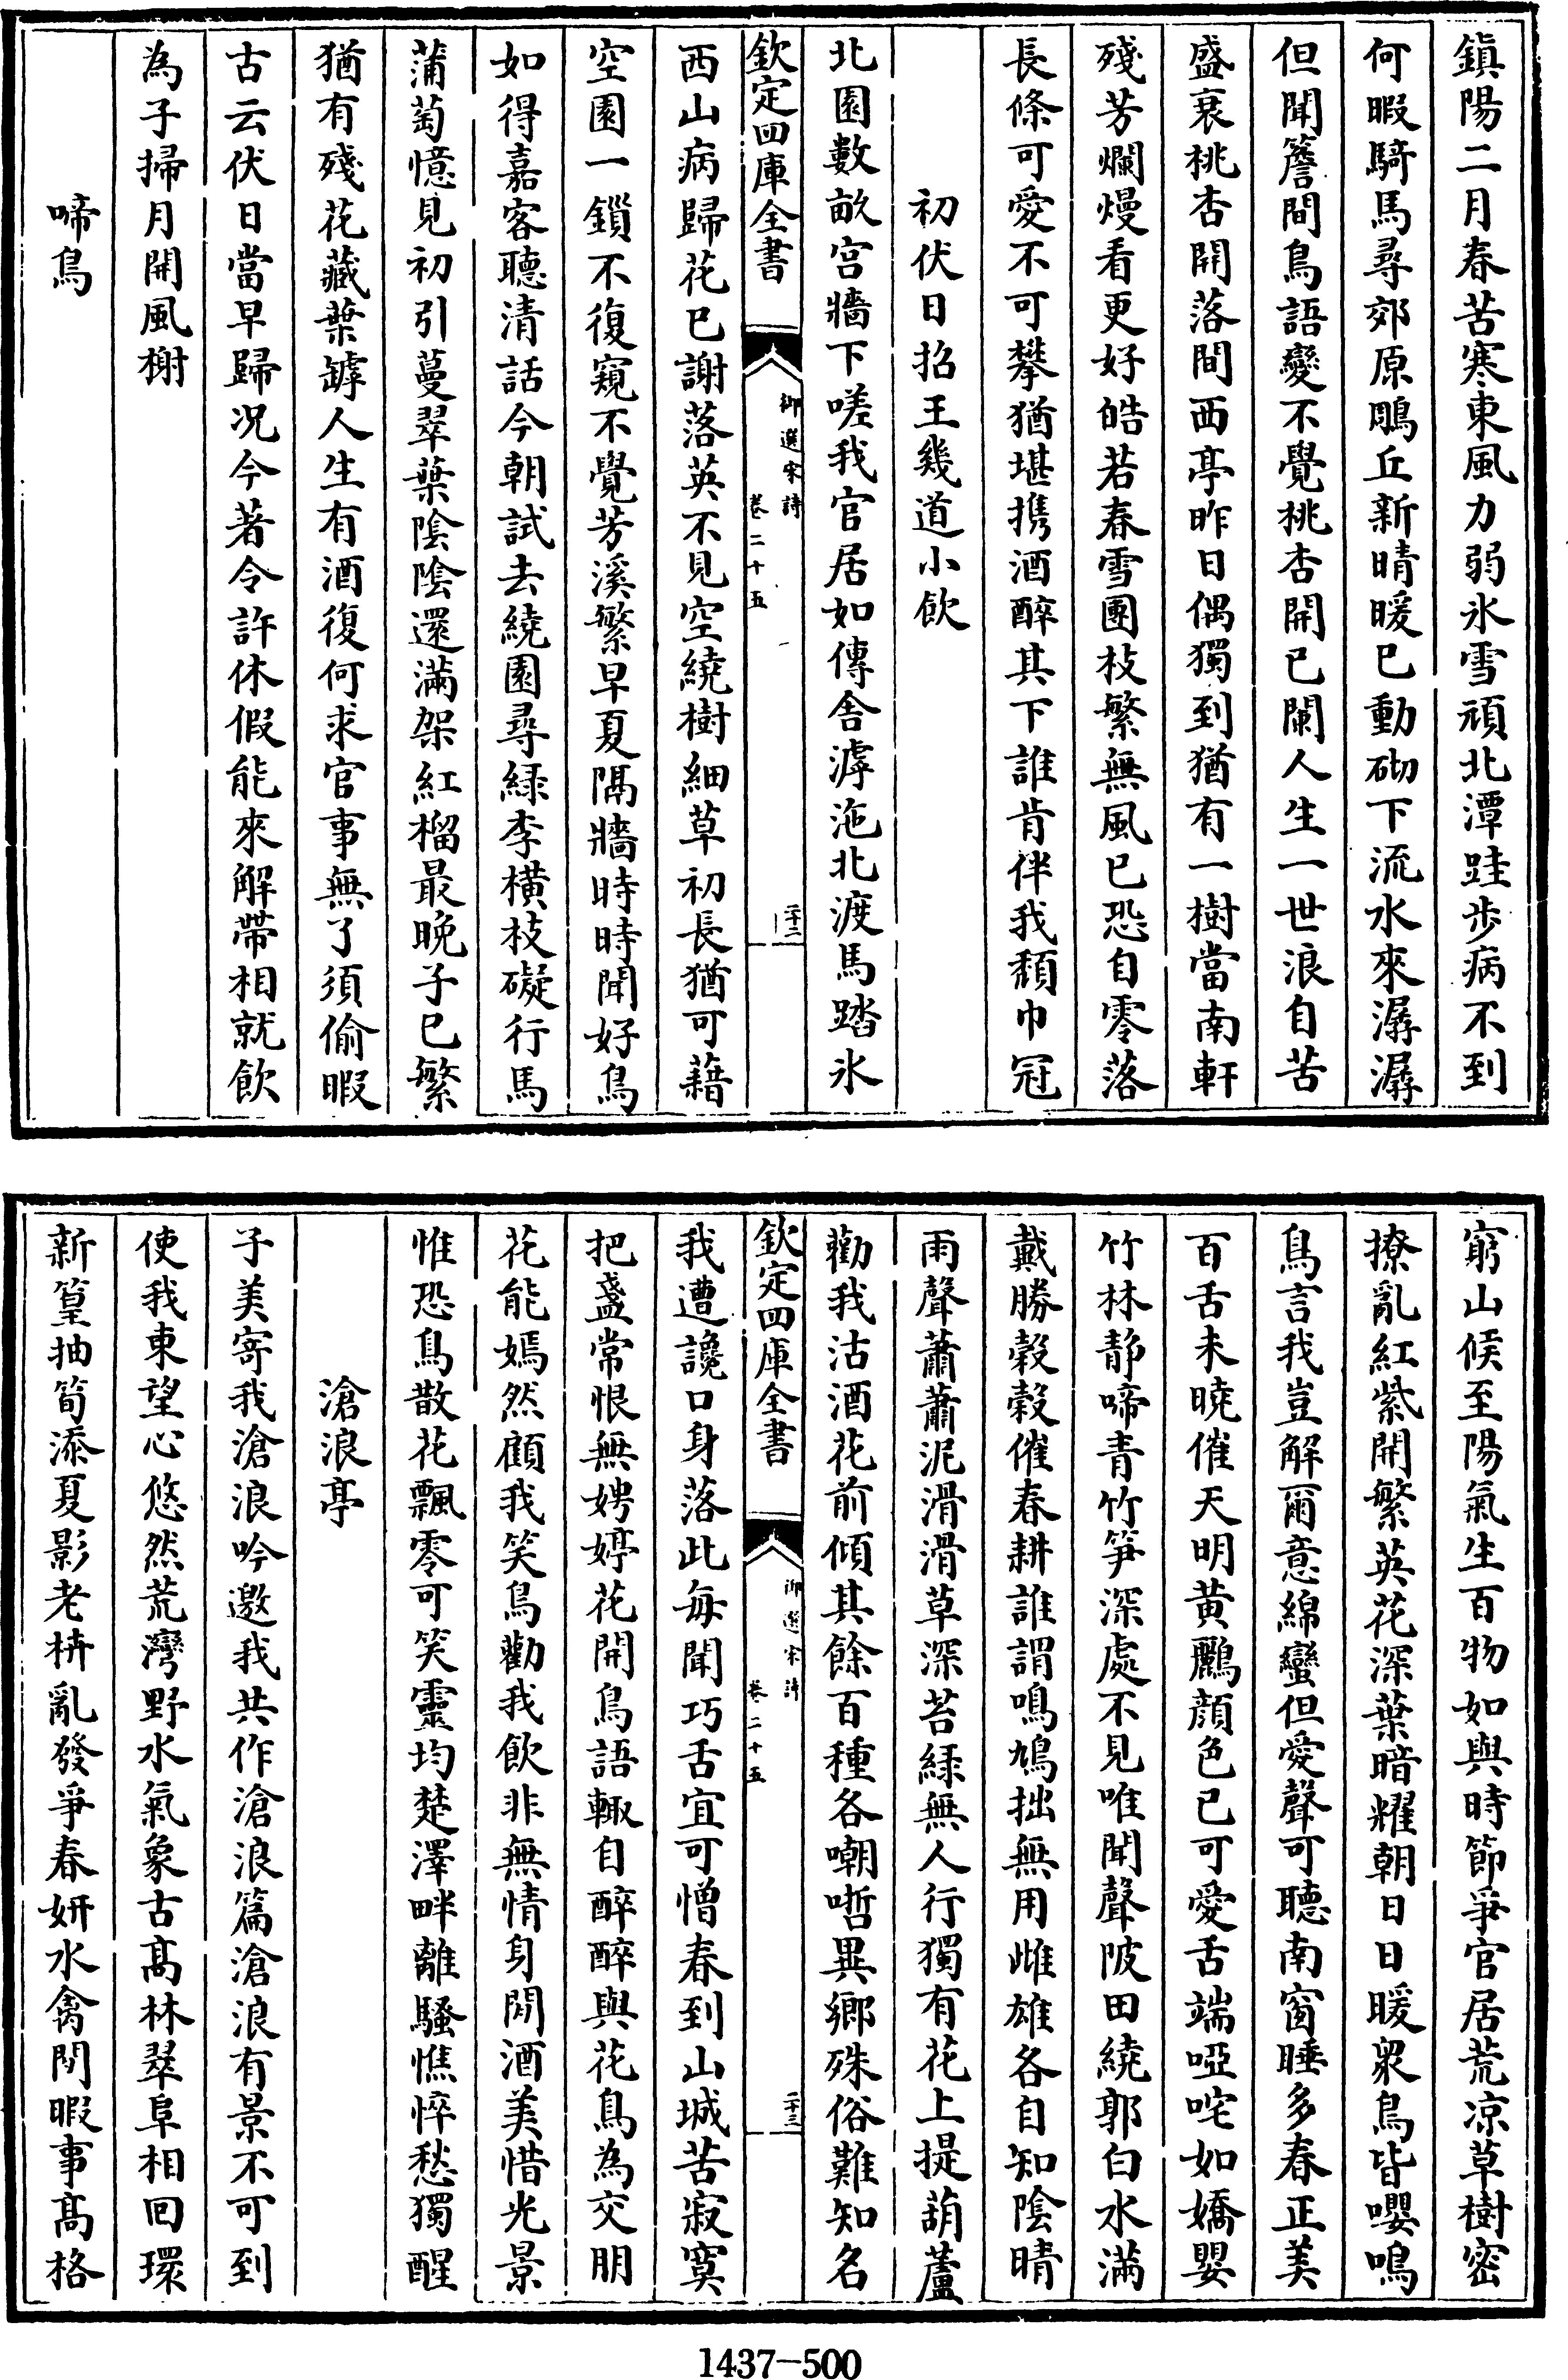 鎮陽二月春苦寒東風力弱氷雪頑北潭跬步病不到
何暇騎馬尋郊原鵰丘新晴暖已動砌下流水來潺潺
但聞簷間鳥語變不覺桃杏開已闌人生一世浪自苦
盛衰桃杏開落間西亭昨日偶獨到猶有一樹當南軒
殘芳爛熳看更好皓若春雪團枝繁無風已恐自零落
長條可愛不可攀猶堪携酒醉其下誰肯伴我頹巾冠
初伏日招王幾道小飲
北園數畝宫牆下嗟我官居如傳舍滹沱北渡馬踏氷
欽定四庫全書
御選宋詩
卷二十五
二十二
西山病歸花已謝落英不見空繞樹細草初長猶可藉
空園一鎖不復窺不覺芳溪繁早夏隔牆時時聞好鳥
如得嘉客聽清話今朝試去繞園尋綠李橫枝礙行馬
蒲萄憶見初引蔓翠葉陰陰還滿架紅榴最晚子已繁
猶有殘花藏葉罅人生有酒復何求官事無了須偷暇
古云伏日當早歸况今著令許休假能來解帶相就飲
為子掃月開風榭
啼鳥
窮山候至陽氣生百物如與時節爭官居荒凉草樹密
撩亂紅紫開繁英花深葉暗耀朝日日暖衆鳥皆嚶鳴
鳥言我豈解爾意綿蠻但愛聲可聽南窗睡多春正美
百舌未曉催天明黄鸝顔色已可愛舌端啞咤如嬌嬰
竹林静啼青竹笋深處不見唯聞聲陂田繞郭白水滿
戴勝穀穀催春耕誰謂鳴鳩拙無用雌雄各自知陰晴
雨聲蕭蕭泥滑滑草深苔綠無人行獨有花上提葫蘆
勸我沽酒花前傾其餘百種各嘲哳異鄉殊俗難知名
欽定四庫全書
御選宋詩
卷二十五
二十三
我遭讒口身落此每聞巧舌宜可憎春到山城苦寂寞
把盞常恨無娉婷花開鳥語輙自醉醉與花鳥為交朋
花能嫣然顧我笑鳥勸我飲非無情身閒酒美惜光景
惟恐鳥散花飄零可笑靈均楚澤畔離騷憔悴愁獨醒
滄浪亭
子美寄我滄浪吟邀我共作滄浪篇滄浪有景不可到
使我東望心悠然荒灣野水氣象古髙林翠阜相回環
新篁抽筍添夏影老枿亂發爭春妍水禽閒暇事髙格
1437-500